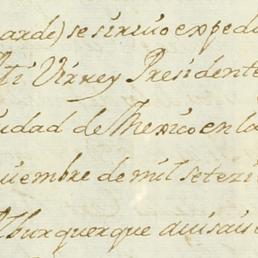 arde) se siruio expedi
Ati Virrey Presidente
iudad de Mexico en la
uiembre de mil seteci
Alburquerque auisaue